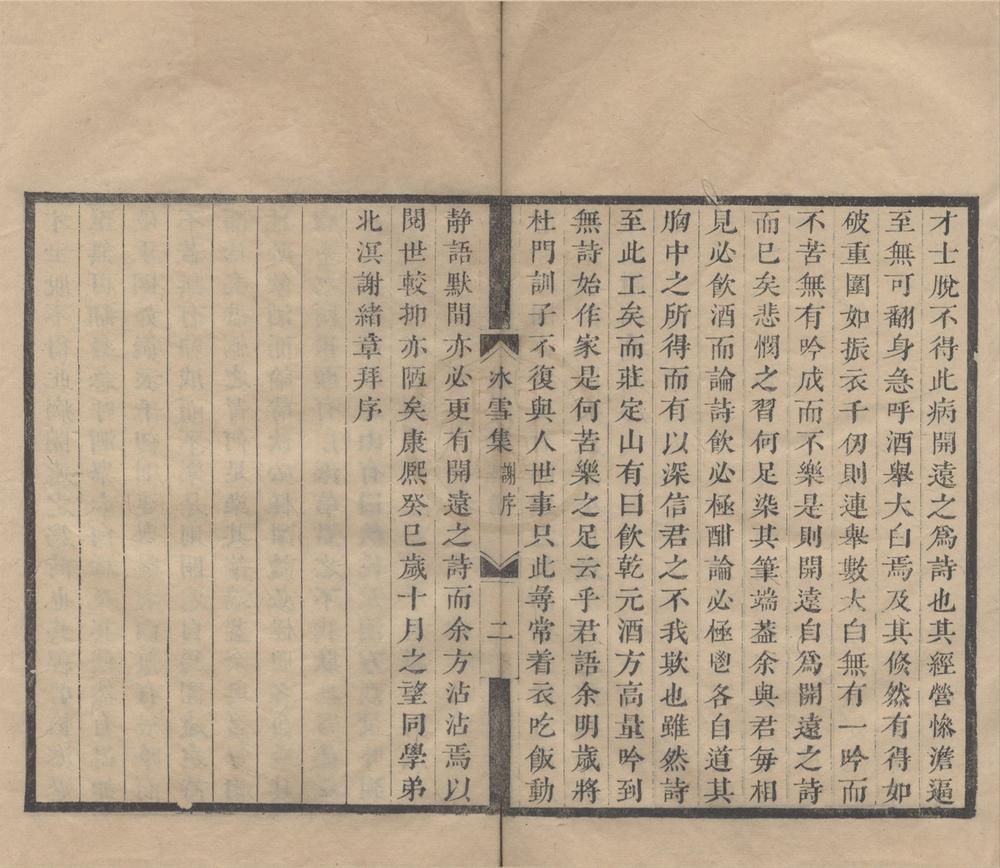 才士脫不得此病開遠之爲詩也其經營慘澹逼
至無可翻身急呼酒舉大白焉及其倏然有得如
破重圍如振衣千仞則連舉數大白無有一吟而
不苦無有吟成而不樂是則開遠自爲開遠之詩
而巳矣悲憫之習何足染其筆端葢余與君每相
見必飲酒而論詩飲必極酣論必極鬯各自道其
胸中之所得而有以深信君之不我欺也雖然詩
至此工矣而莊定山有曰飲乾元酒方高量吟到
無詩始作家是何苦樂之足云乎君語余明歲將
杜門訓子不復與人世事只此尋常着衣吃飯動
氷雪集 謝序 二
靜語默間亦必更有開遠之詩而余方沾沾焉以
閱世較抑亦陋矣康熈癸巳歲十月之望同學弟
北溟謝緒章拜序